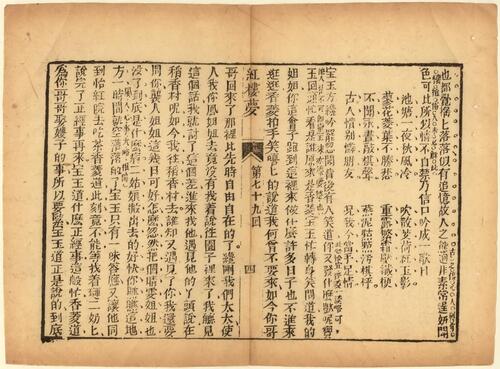 也都覺搖搖落落似有追憶故人之態迥非素常逞妍鬥
色可比所以情不自禁乃信口吟成一歌曰
池塘一夜秋風冷 吹散芰荷紅玉影
蓼花菱葉不勝悲 重露繁霜壓纖梗
不聞永晝敲棋聲 燕泥點點污棋枰
古人惜別憐朋友 況我今當手足情
宝玉方纔吟罷忽聞背後有人笑道你又發什麽獃呢宝
玉回頭忙看是誰原來是香菱宝玉忙轉身笑問道我的
姐姐你這會子跑到這裡來做什麽許多日子也不進來
逛逛香菱拍手笑嘻嘻的說道我何曾不要來如今你哥
紅樓夢 第七十九回 四
哥回來了那裡比先時自由自在的了纔剛我們太太使
人找你鳳姐姐去竟沒有找着說往園子裡來了我聽見
這個話我就討了這個差進來找他遇見他的丫頭說在
稻香村呢如今我往稻香村去誰知又遇見了你我還要
問你襲人姐姐這幾日可好怎麽忽然把個晴雯姐姐也
没了到底是什麽病二姑娘搬出去的好快你瞧瞧這地
方一時間就空落落的了宝玉只有一味答應又讓他同
到怡紅院去吃茶香菱道此刻竟不能等找着璉二奶奶
說完了正經事再來宝玉道什麽正經事這般忙香菱道
為你哥哥娶嫂子的事所以要緊宝玉道正是說的到底